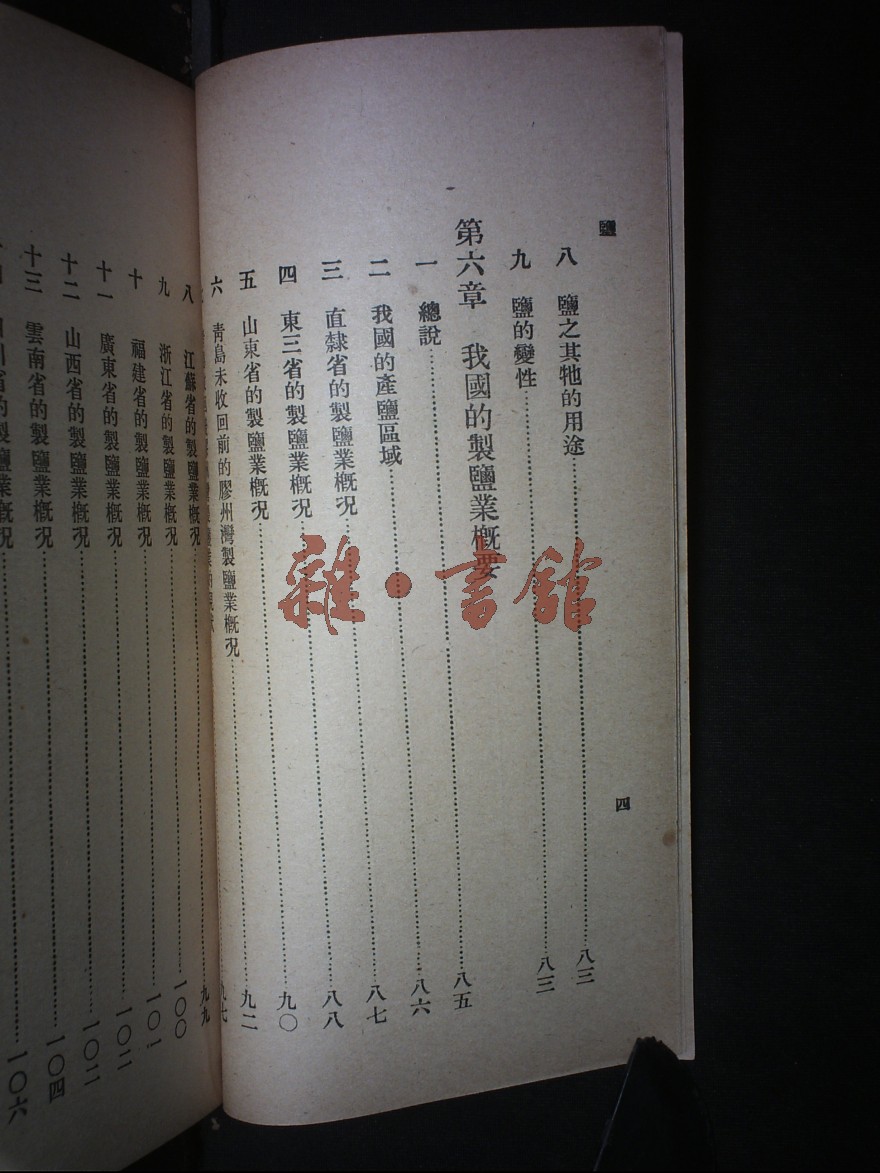 鹽
四
八 鹽之其牠的用途……八三
九 鹽的變性……八三
第六章 我國的製鹽業槪要
一 總說……八五
二 我國的產鹽區域……八六
三 直隸省的製鹽業槪況……八七
四 東三省的製鹽業槪況……八八
五 山東省的製鹽業槪況……九〇
六 靑島未收回前的膠州灣製鹽業槪況……九二
九七
八 江蘇省的製鹽業槪況……九九
九 浙江省的製鹽業槪況……一〇〇
十 福建省的製鹽業槪況……一〇一
十一 廣東省的製鹽業槪況……一〇二
十二 山西省的製鹽業槪況……一〇二
十三 雲南省的製鹽業槪況……一〇四
川省的製鹽業槪況……一〇六
雜·書館